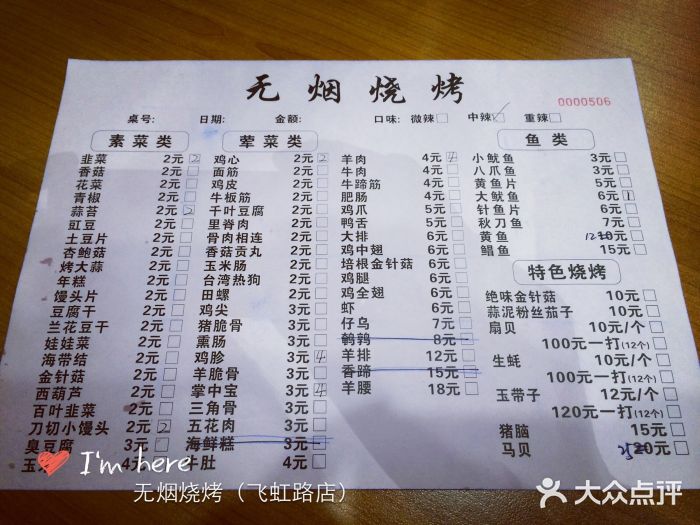 无烟烧烤
0000506
桌号: 日期: 金额: 口味: 微辣□ 中辣☑ 重辣□
素菜类
韭菜 2元 2
香菇 2元□
花菜 2元□
青椒 2元□
蒜苔 2元 2
豇豆 2元□
土豆片 2元□
杏鲍菇 2元□
烤大蒜 2元□
年糕 2元□
馒头片 2元□
豆腐干 2元□
兰花豆干 2元□
娃娃菜 2元□
海带结 2元□
金针菇 2元□
西葫芦 2元□
百叶韭菜 2元□
刀切小馒头 2元 2
臭豆腐 3元□
玉 4元□
荤菜类
鸡心 2元 2
面筋 2元□
鸡皮 2元□
牛板筋 2元□
千叶豆腐 2元□
里脊肉 2元□
骨肉相连 2元□
香菇贡丸 2元□
玉米肠 2元□
台湾热狗 2元□
田螺 2元□
鸡尖 3元□
猪脆骨 3元□
熏肠 3元□
鸡胗 3元 4
羊脆骨 3元□
掌中宝 3元 4
三角骨 3元□
五花肉 3元□
海鲜糕 3元□
牛肚 4元□
羊肉 4元 4
牛肉 4元□
牛蹄筋 4元□
肥肠 4元□
鸡爪 5元□
鸭舌 5元□
大排 6元□
鸡中翅 6元□
培根金针菇 6元□
鸡腿 6元□
鸡全翅 6元□
虾 6元□
仔乌 7元□
鹌鹑 8元□
羊排 12元□
香蹄 15元□
羊腰 18元□
鱼类
小鱿鱼 3元□
八爪鱼 3元□
黄鱼片 5元□
大鱿鱼 6元 1
针鱼片 6元□
秋刀鱼 7元□
黄鱼 12 10元□
鲳鱼 15元□
特色烧烤
绝味金针菇 10元□
蒜泥粉丝茄子 10元□
扇贝 10元/个□
100元一打(12个)□
生蚝 10元/个□
100元一打(12个)□
玉带子 12元/个□
120元一打(12个)□
猪脑 15元□
马贝 25 20元□
I'm here
无烟烧烤（飞虹路店）
大众点评